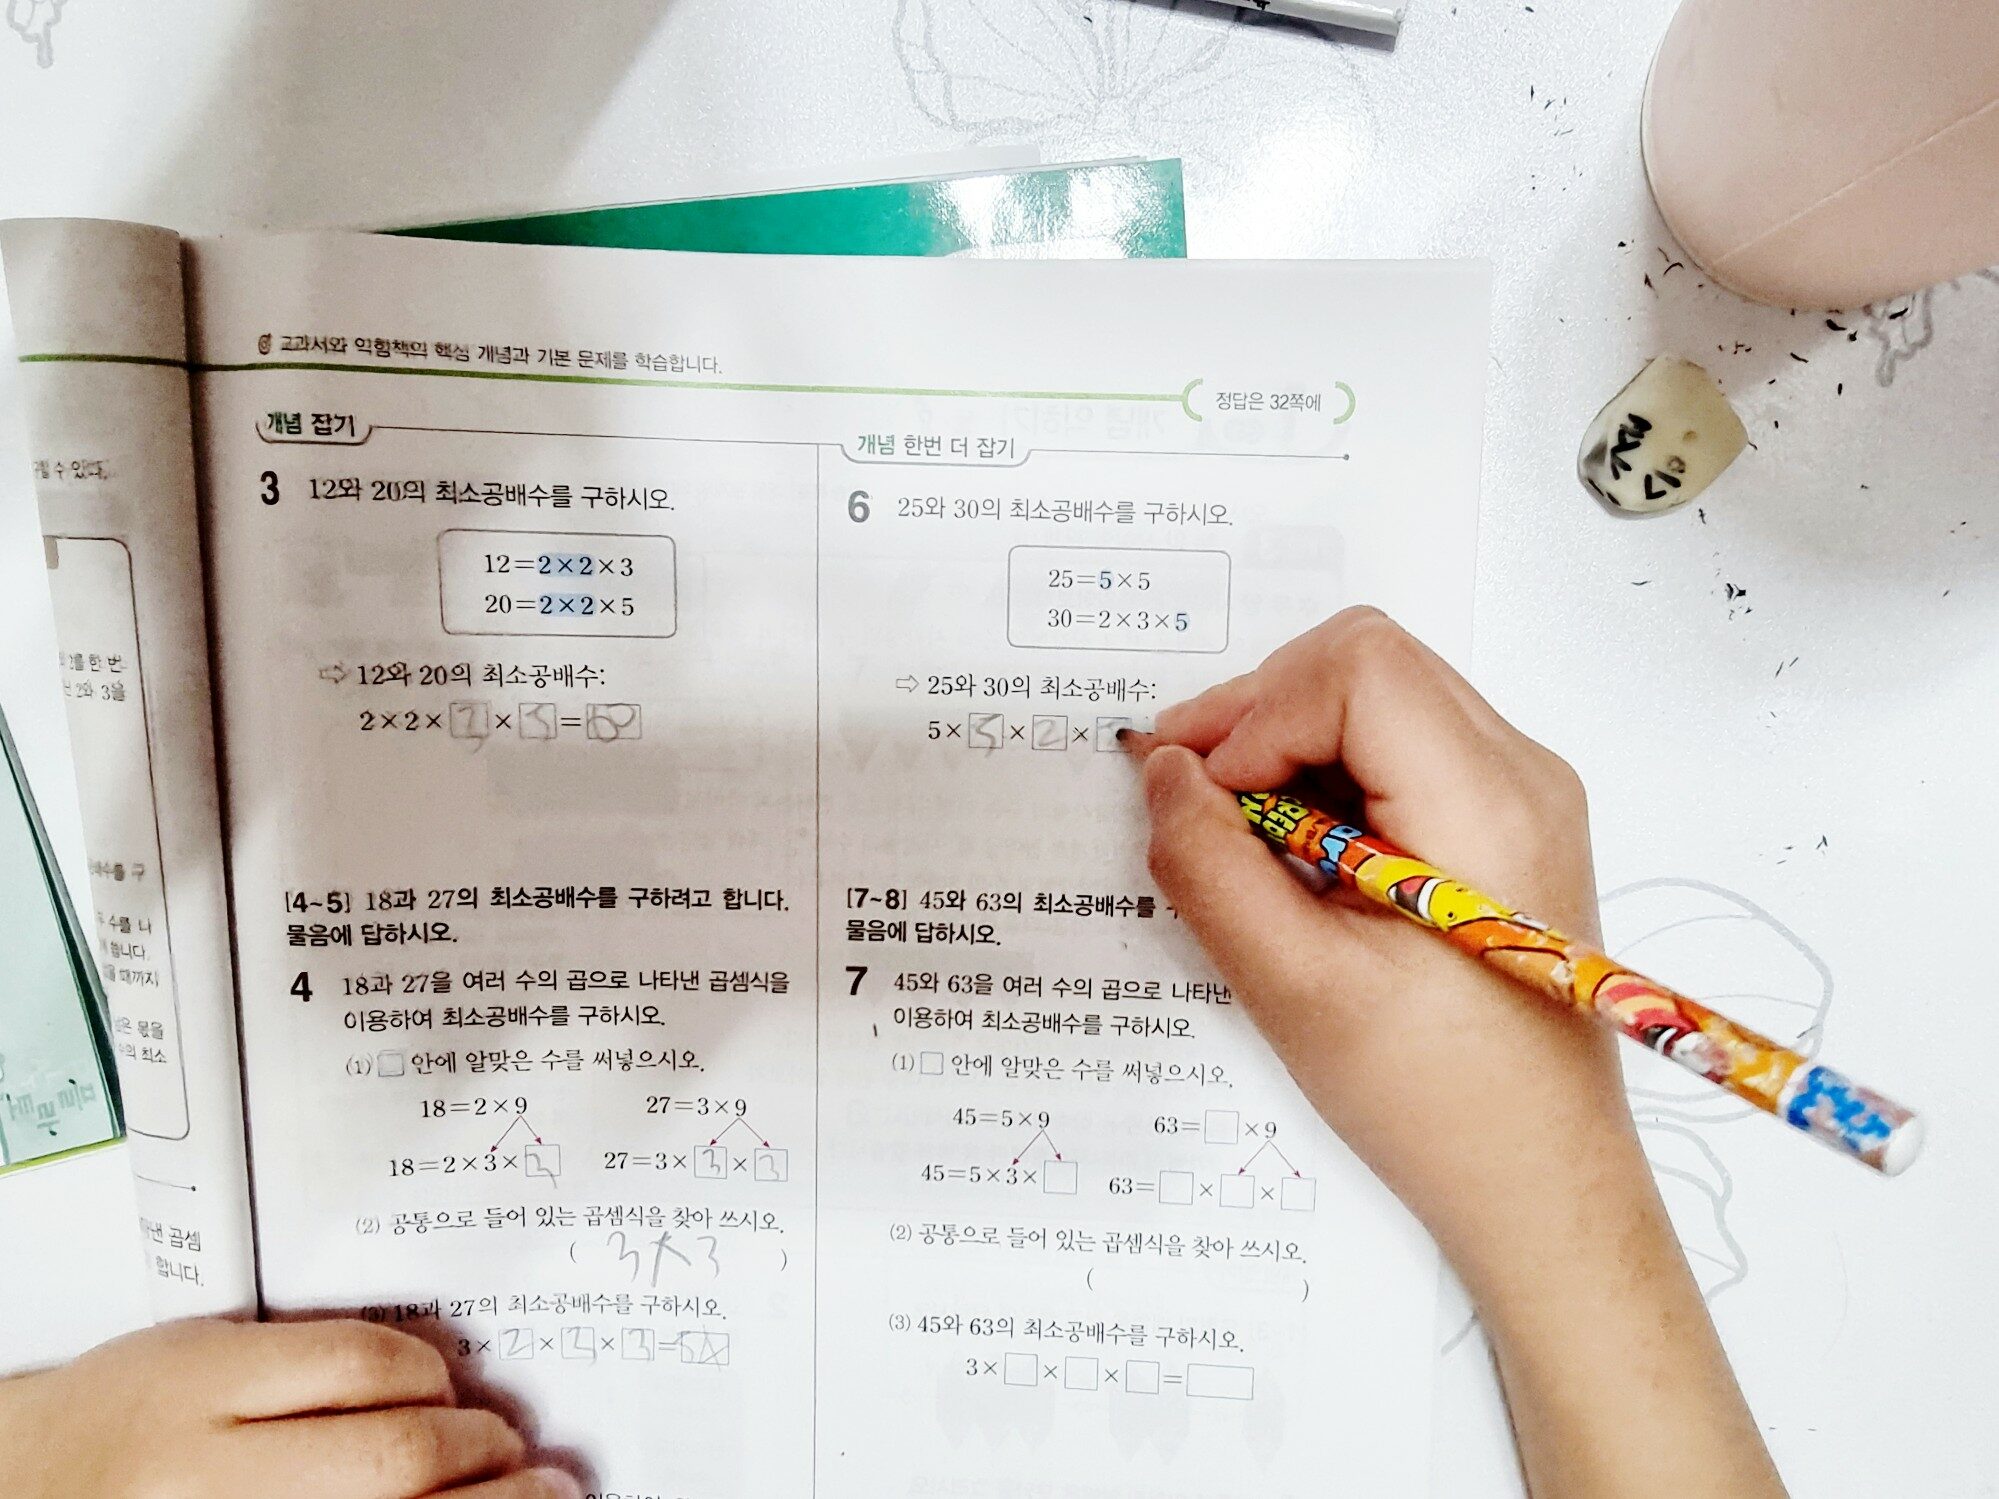 교과서와 익힘책의 핵심 개념과 기본 문제를 학습합니다.
정답은 32쪽에
개념 잡기
3 12와 20의 최소공배수를 구하시오.
12=2×2×3
20=2×2×5
⇨ 12와 20의 최소공배수:
2×2×3×5=60
[4~5] 18과 27의 최소공배수를 구하려고 합니다.
물음에 답하시오.
4 18과 27을 여러 수의 곱으로 나타낸 곱셈식을
이용하여 최소공배수를 구하시오.
(1) □ 안에 알맞은 수를 써넣으시오.
18=2×9 27=3×9
18=2×3×3 27=3×3×3
(2) 공통으로 들어 있는 곱셈식을 찾아 쓰시오.
( 3×3 )
(3) 18과 27의 최소공배수를 구하시오.
3×2×3×3=54
개념 한번 더 잡기
6 25와 30의 최소공배수를 구하시오.
25=5×5
30=2×3×5
⇨ 25와 30의 최소공배수:
5×5×2×
[7~8] 45와 63의 최소공배수를
물음에 답하시오.
7 45와 63을 여러 수의 곱으로 나타낸
이용하여 최소공배수를 구하시오.
(1) □ 안에 알맞은 수를 써넣으시오.
45=5×9 63=□×9
45=5×3×□ 63=□×□×□
(2) 공통으로 들어 있는 곱셈식을 찾아 쓰시오.
( )
(3) 45와 63의 최소공배수를 구하시오.
3×□×□×□=□
수 있습니다.
를 한 번
2와 3을
수를 나
때까지
몫을
최소
곱셈
합니다.